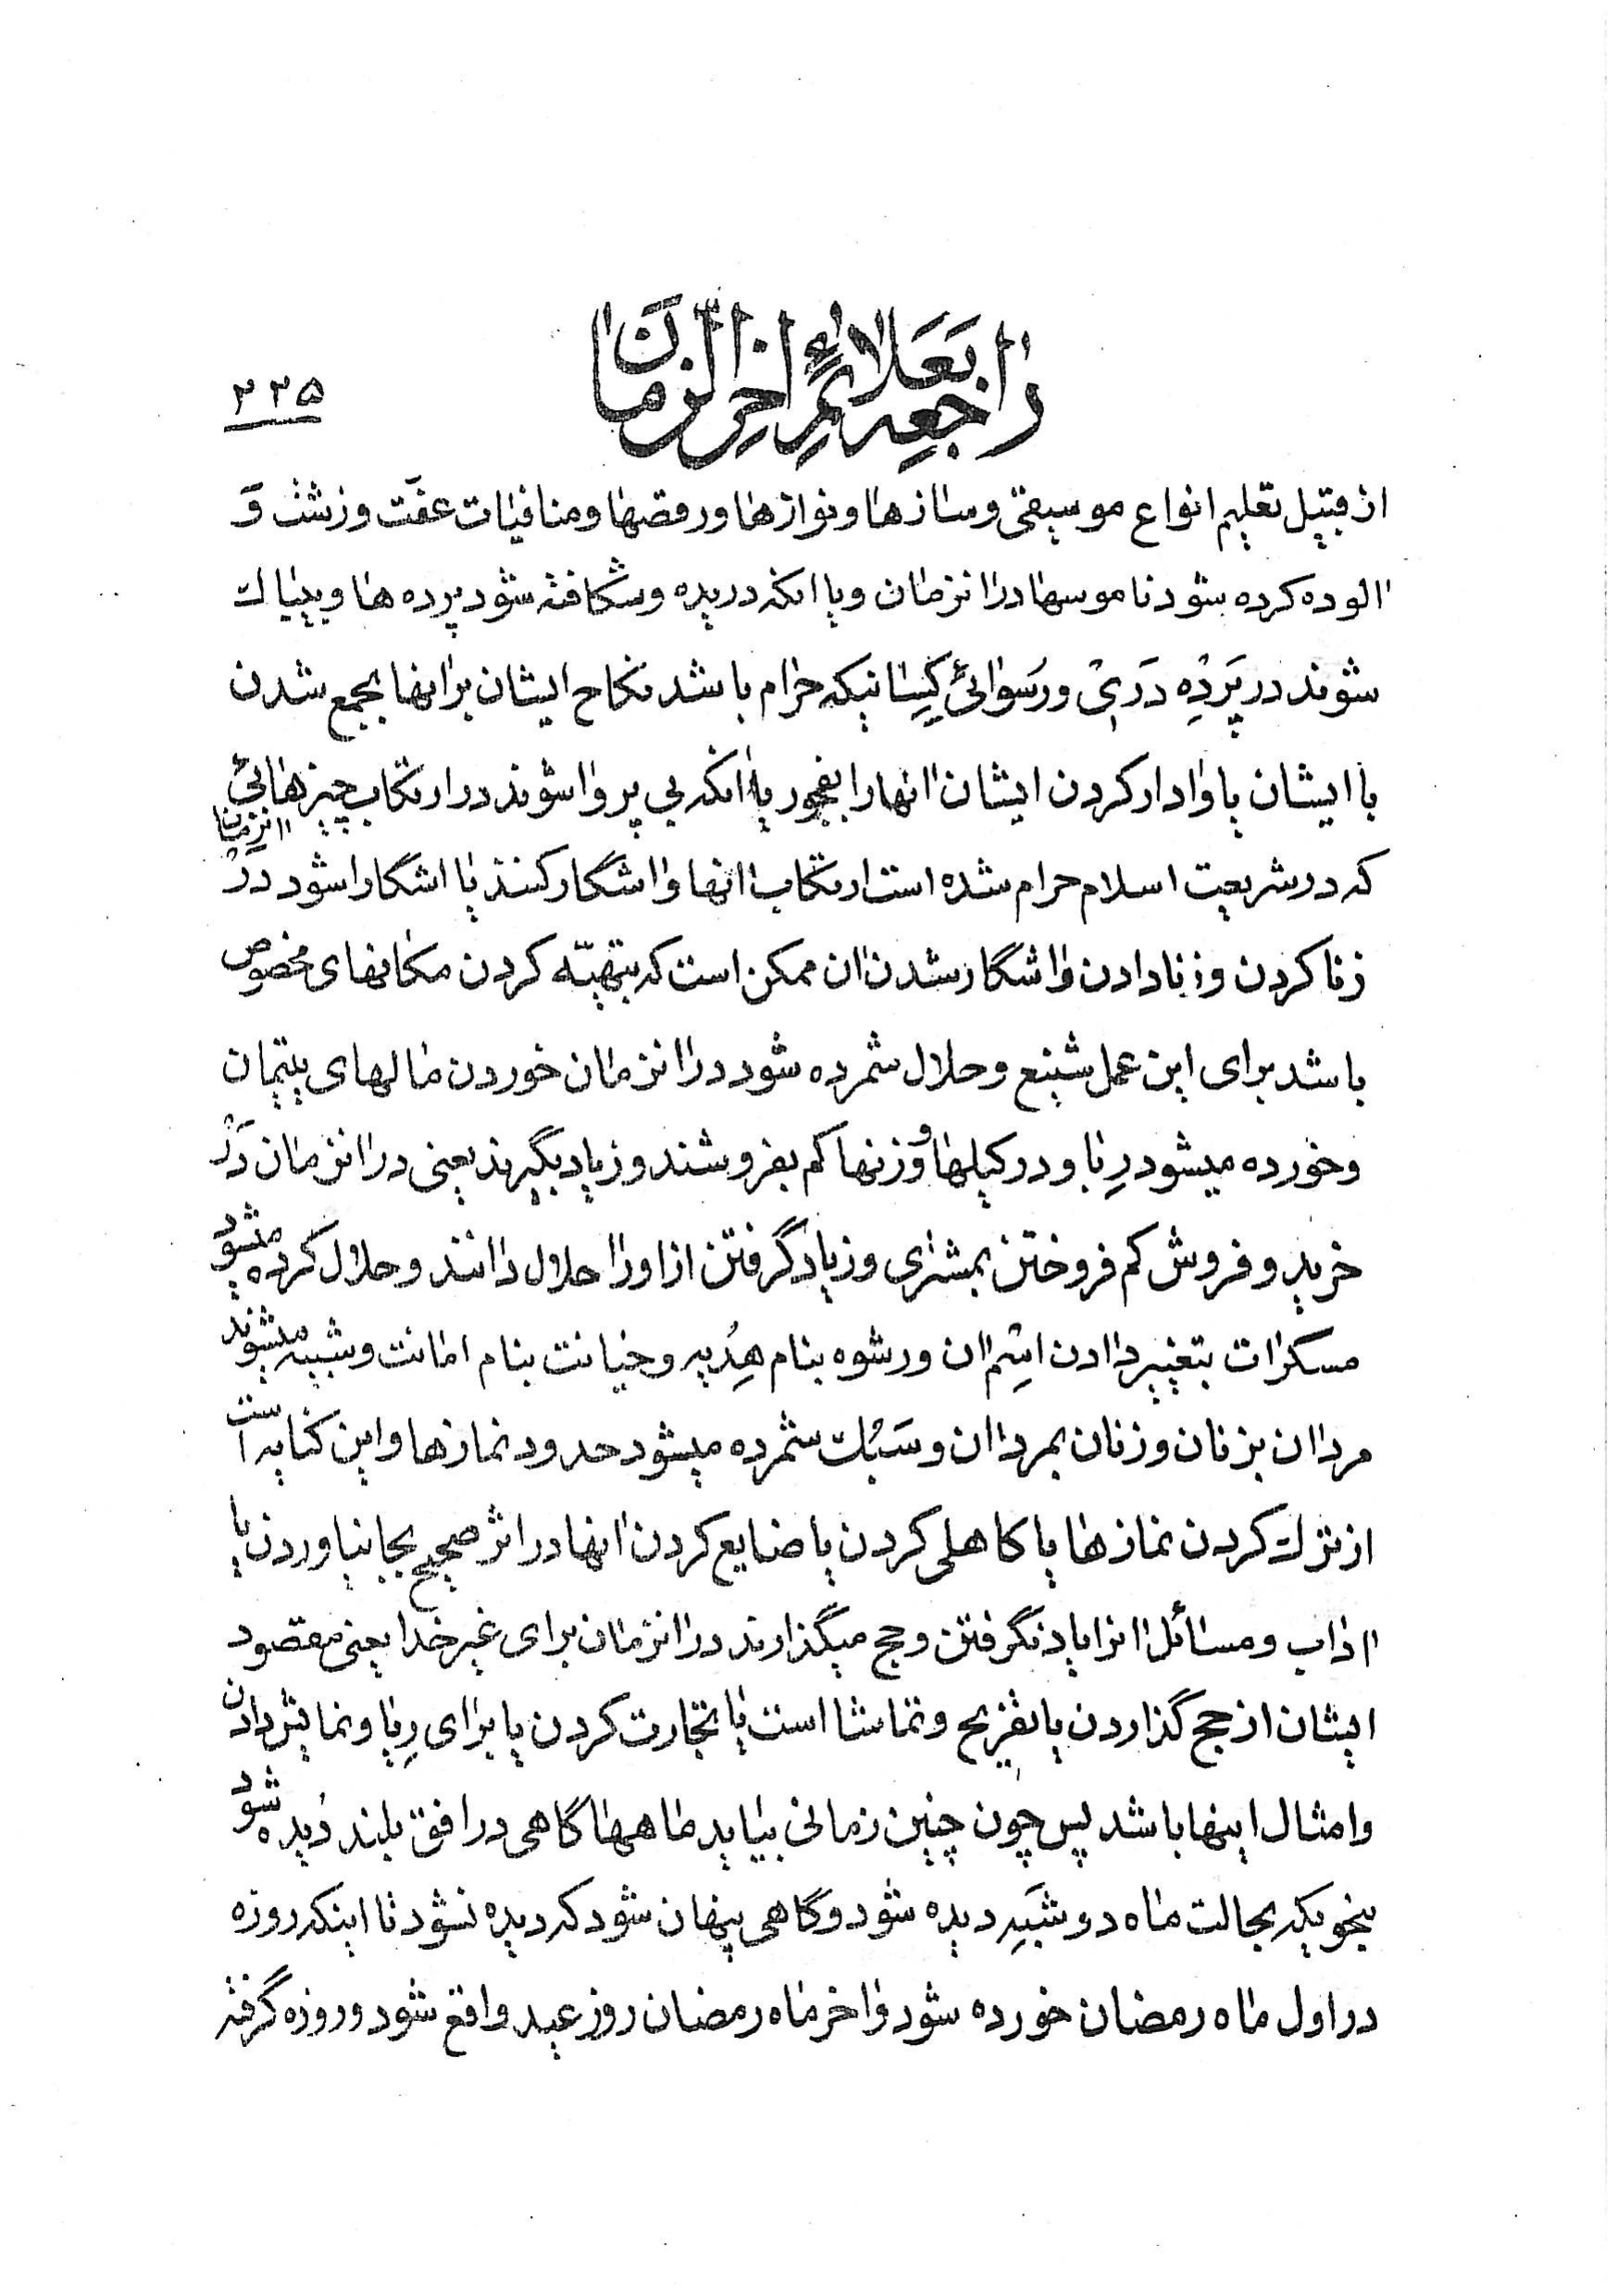 راجعه بعلائم اخر الزمان
۲۲۵
از قبیل تعلیم انواع موسیقی و سازها و نوازها و رقصها و منافیات عفّت و زشت وَ
الوده کرده شود ناموسها درانزمان و یا انکه دریده و شکافته شود پرده ها و بیباک
شوند در پَرْدِه دَرىْ و رَسْوائیِ کِسانیکه حرام باشد نکاح ایشان برانها بجمع شدن
با ایشان یا وادار کردن ایشان انها را بفجور یا انکه بی پروا شوند در ارتکاب چیزهائی
که در شریعت اسلام حرام شده است ارتکاب انها و اشگار کنند یا اشگارا شود دَرْ انزمان
زنا کردن و زنا دادن و اشگار شدن ان ممکن است که بتهیّه کردن مکانهای مخصوص
باشد برای این عمل شنیع و حلال شمرده شود درانزمان خوردن مالهای یتیمان
و خورده میشود رِبا و در کیلها و وزنها کم بفروشند و زیاد بگیرند یعنی درانزمان دَرْ
خرید و فروش کم فروختن بمشتری و زیاد گرفتن از او را حلال دانند و حلال کرده میشود
مسکرات بتغییر دادن اسِم ان و رشوه بنام هِدْیه و خیانت بنام امانت و شبیه میشوند
مردان بزنان و زنان بمردان و سَبُک شمرده میشود حدود نمازها و این کنایه است
از ترک کردن نمازها یا کاهلی کردن یا ضایع کردن انها در اثر صحیح بجا نیاوردن یا
اداب و مسائل انرا یاد نگرفتن و حج میگذارند درانزمان برای غیر خدا یعنی مقصود
ایشان از حج گذاردن یا تفریح و تماشا است یا تجارت کردن یا برای رِیا و نمایش دادن
و امثال اینها باشد پس چون چنین زمانی بیاید ماهها گاهی در افق بلند دیده شود
بنحویکه بحالت ماه دو شَبِه دیده شود و گاهی پنهان شود که دیده نشود تا اینکه روزه
در اول ماه رمضان خورده شود و اخر ماه رمضان روز عید واقع شود و روزه گرفته